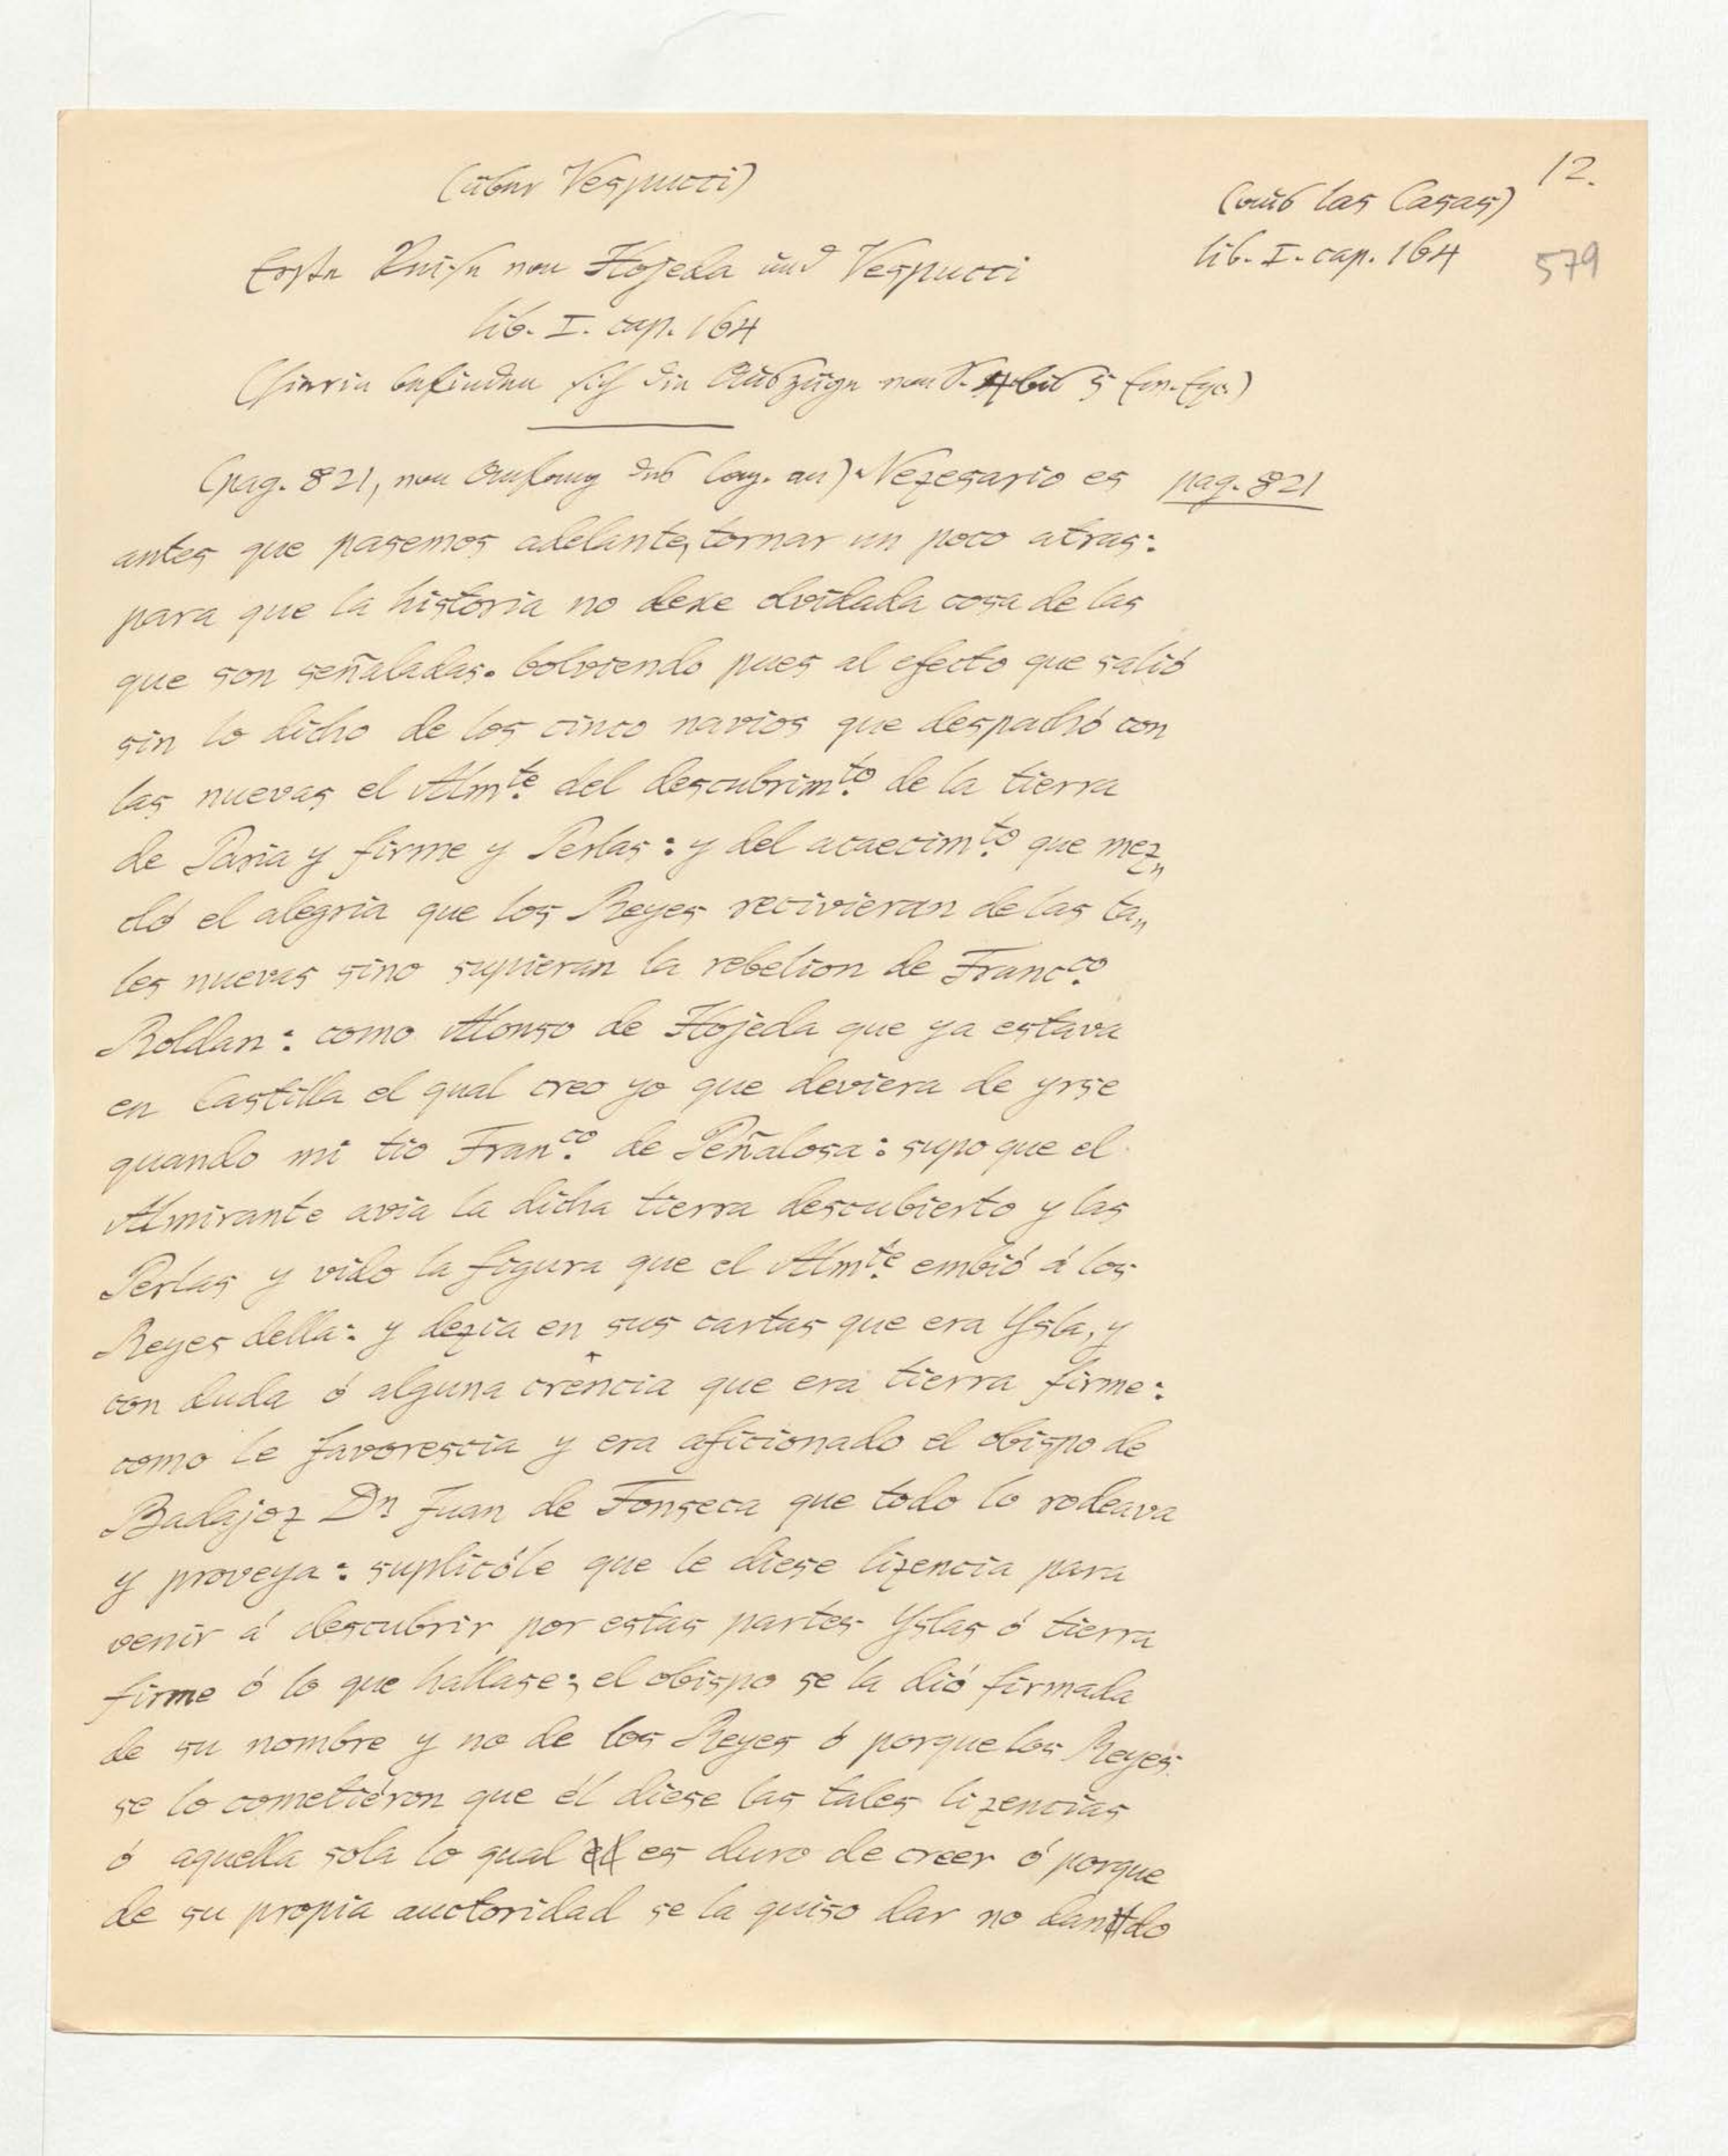 12.
(über Vespucci)
(aus las Casas)
lib. I. cap. 164
579
Erste Reise von Hojeda und Vespucci
lib. I. cap. 164
(hierin befinden sich die Auszüge von S. bis 5
(pag. 821, von Anfang des Cap. an) Nezesario es pag. 821
antes que pasemos adelante, tornar un poco atras:
para que la historia no dexe olvidada cosa de las
que son señaladas. bolviendo pues al efecto que salió
sin lo dicho de los cinco navios que despachó con
las nuevas el Almte. del descubrimto. de la tierra
de Paria y firme y Perlas: y del acaecimto. que mez„
cló el alegria que los Reyes recivieran de las ta„
les nuevas sino supieran la rebelion de Francco.
Roldan: como Alonso de Hojeda que ya estava
en Castilla el qual creo yo que deviera de yrse
quando mi tio Franco. de Peñalosa: supo que el
Almirante avia la dicha tierra descubierto y las
Perlas y vido la figura que el Almte. embió á los
Reyes della: y dezia en sus cartas que era Ysla, y
con duda ó alguna crencia que era tierra firme:
como le favorescia y era aficionado el obispo de
Badajoz Dn Juan de Fonseca que todo lo rodeava
y proveya: suplicóle que le diese lizencia para
venir á descubrir por estas partes Yslas ó tierra
firme ó lo que hallase; el obispo se la dió firmada
de su nombre y no de los Reyes ó porque los Reyes
se lo cometiéron que él diese las tales lizencias
ó aquella sola lo qual es duro de creer ó porque
de su propia auctoridad se la quiso dar no dando